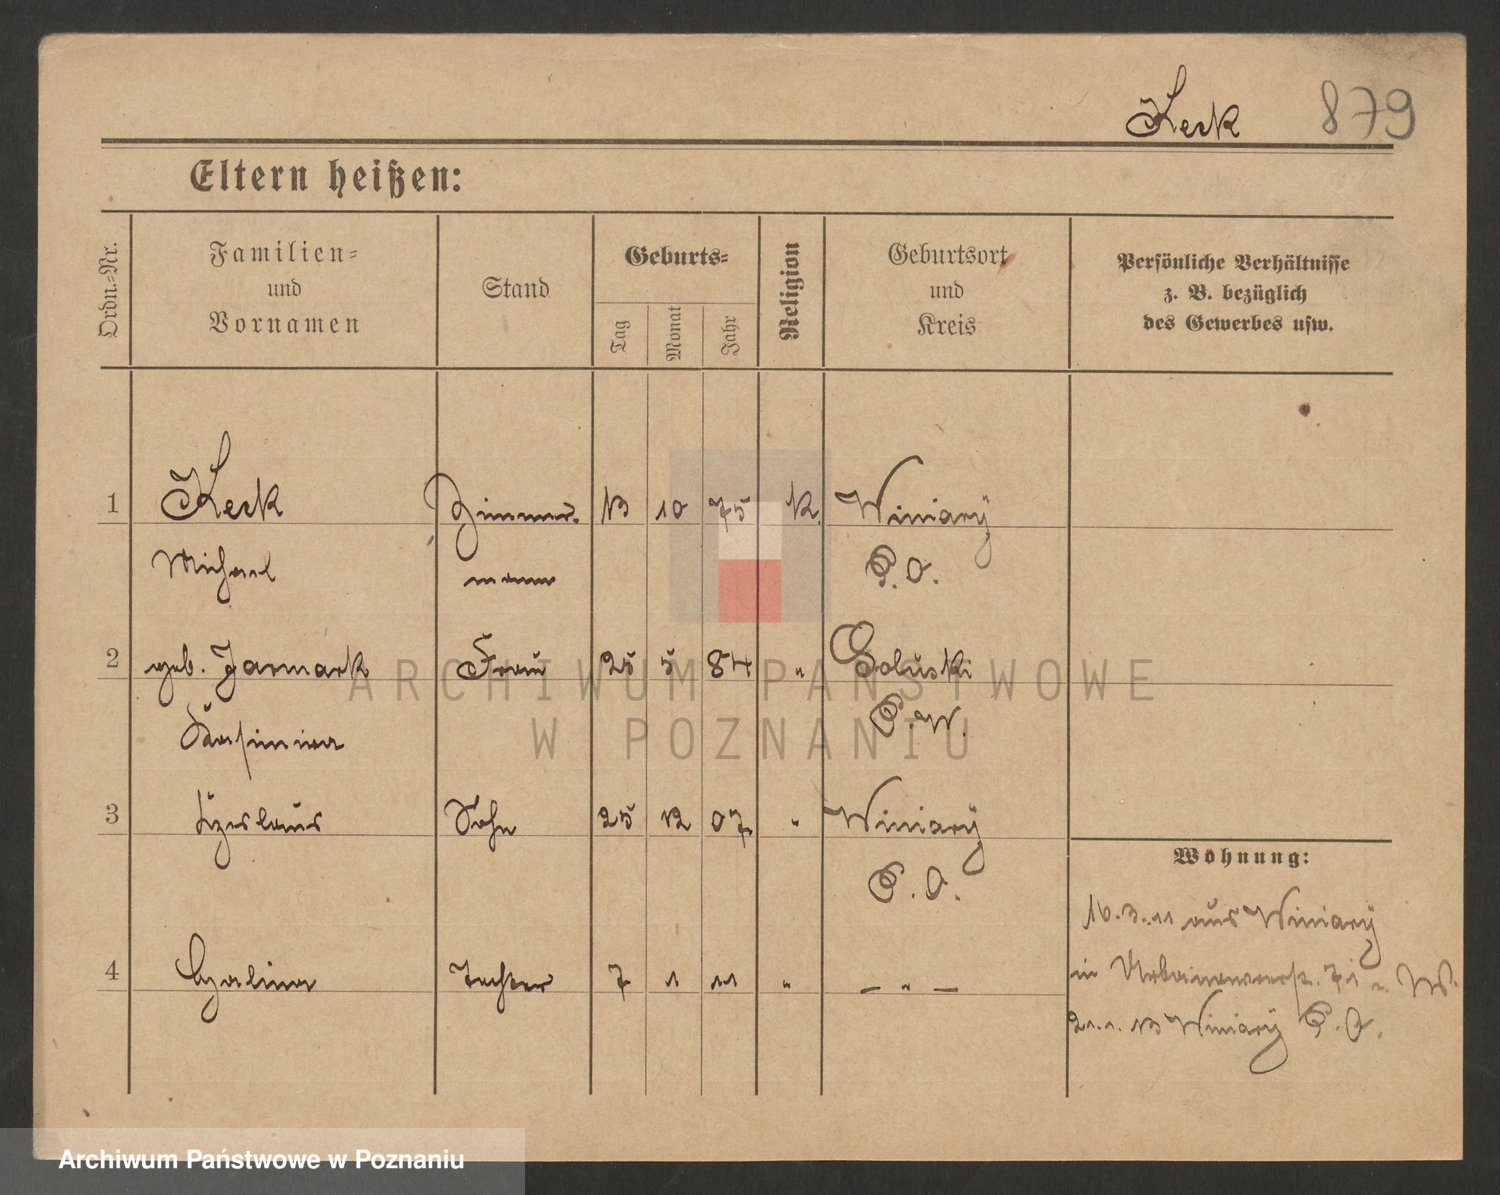 Kerk 879
Eltern heißen:
Ordn.-Nr.
Familien-
und
Vornamen
Stand
Geburts-
Tag
Monat
Jahr
Religion
Geburtsort
und
Kreis
Persönliche Verhältnisse
z. B. bezüglich
des Gewerbes usw.
1 Kerk Zimmer- 13 10 75 K. Winiary
Michael mann P. O.
2 geb. Jarmark Frau 25 5 84 " Goluski
P. W.
3 Czeslaus Sohn 25 12 07 " Winiary
P. O.
4 Halina Tochter 7 1 11 " — " —
Wohnung:
16.3.11 aus Winiary
in 71
21.1.13 Winiary P. O.
ARCHIWUM PAŃSTWOWE
W POZNANIU
Archiwum Państwowe w Poznaniu